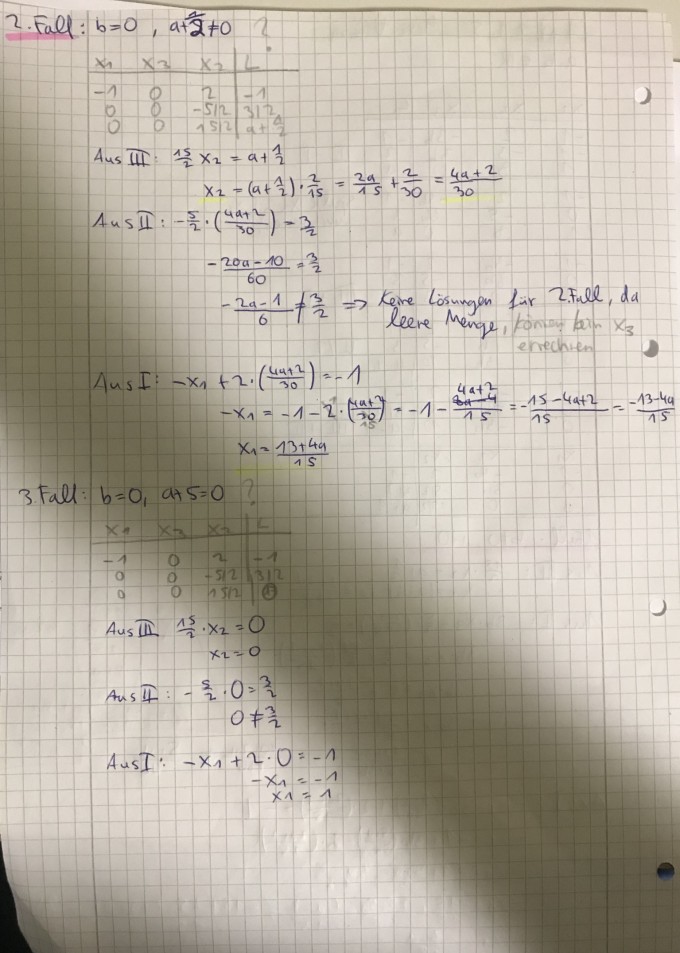 2. Fall: b=0, a+1/2≠0 ?
x1 x3 x2 L
-1 0 2 -1
0 0 -5/2 3/2
0 0 15/2 a+1/2
Aus III: 15/2 x2 = a+1/2
x2 = (a+1/2)·2/15 = 2a/15 + 2/30 = 4a+2/30
Aus II: -5/2·(4a+2/30) = 3/2
-20a-10/60 = 3/2
-2a-1/6 ≠ 3/2 => Keine Lösungen für 2 Fall, da
leere Menge, können kein x3
errechnen
Aus I: -x1 + 2·(4a+2/30) = -1
-x1 = -1-2·(4a+2/30) = -1 - 4a+2/15 = -15-4a+2/15 = -13-4a/15
x1 = 13+4a/15
3 Fall: b=0, a+5=0 ?
x1 x3 x2 L
-1 0 2 -1
0 0 -5/2 3/2
0 0 15/2 0
Aus III 15/2·x2 = 0
x2 = 0
Aus II: -5/2·0 = 3/2
0 ≠ 3/2
Aus I: -x1 + 2·0 = -1
-x1 = -1
x1 = 1